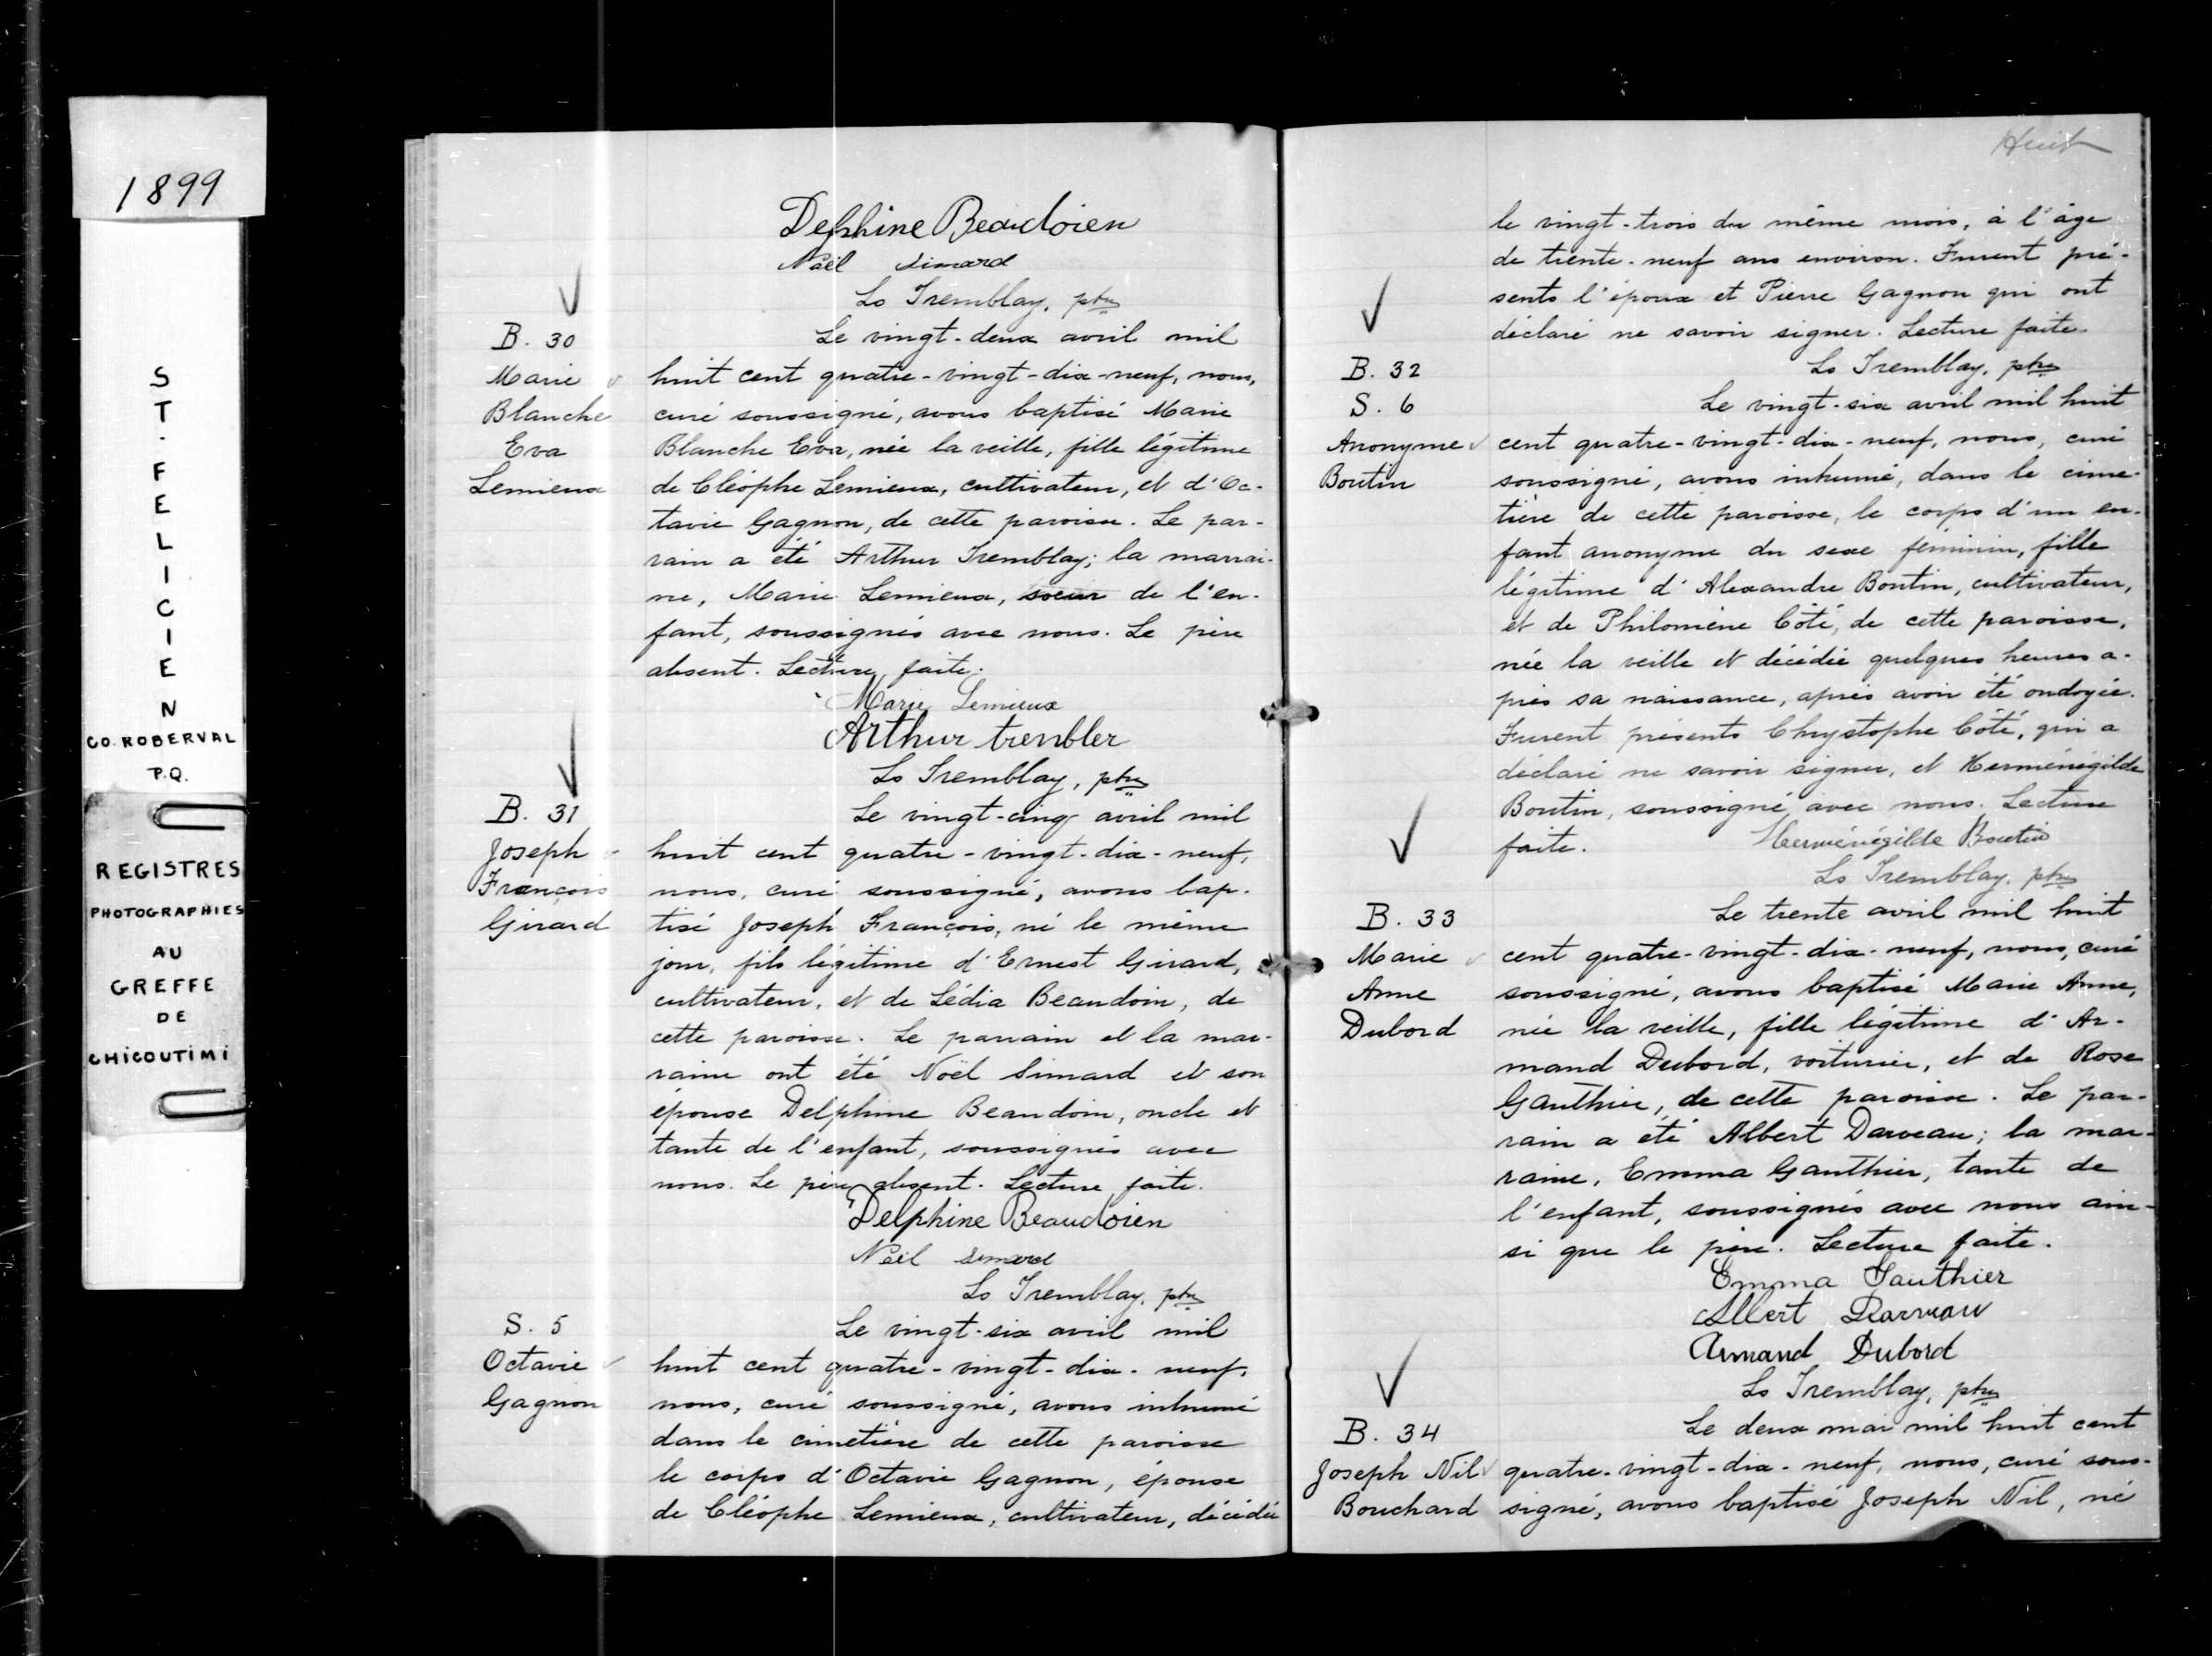 1899
ST. FELICIEN
CO. ROBERVAL
P.Q.
REGISTRES
PHOTOGRAPHIES
AU
GREFFE
DE
CHICOUTIMI
Delphine Beaudoien
Noël Simard
Ls Tremblay, ptre
B. 30
Marie
Blanche
Eva
Lemieux
Le vingt-deux avril mil
huit cent quatre-vingt-dix-neuf, nous,
curé soussigné, avons baptisé Marie
Blanche Eva, née la veille, fille légitime
de Cléophe Lemieux, cultivateur, et d'Oc-
tavie Gagnon, de cette paroisse. Le par-
rain a été Arthur Tremblay; la marrai-
ne, Marie Lemieux, soeur de l'en-
fant, soussignés avec nous. Le père
absent. Lecture faite.
Marie Lemieux
Arthur trenbler
Ls Tremblay, ptre
B. 31
Joseph
François
Girard
Le vingt-cinq avril mil
huit cent quatre-vingt-dix-neuf,
nous, curé soussigné, avons bap-
tisé Joseph François, né le même
jour, fils légitime d'Ernest Girard,
cultivateur, et de Lédia Beaudoin, de
cette paroisse. Le parrain et la mar-
raine ont été Noël Simard et son
épouse Delphine Beaudoin, oncle et
tante de l'enfant, soussignés avec
nous. Le père absent. Lecture faite.
Delphine Beaudoien
Noël Simard
Ls Tremblay, ptre
S. 5
Octavie
Gagnon
Le vingt-six avril mil
huit cent quatre-vingt-dix-neuf,
nous, curé soussigné, avons inhumé
dans le cimetière de cette paroisse
le corps d'Octavie Gagnon, épouse
de Cléophe Lemieux, cultivateur, décédée
Huit
le vingt-trois du même mois, à l'âge
de trente-neuf ans environ. Furent pré-
sents l'époux et Pierre Gagnon qui ont
déclaré ne savoir signer. Lecture faite.
Ls Tremblay, ptre
B. 32
S. 6
Anonyme
Boutin
Le vingt-six avril mil huit
cent quatre-vingt-dix-neuf, nous, curé
soussigné, avons inhumé, dans le cime-
tière de cette paroisse, le corps d'un en-
fant anonyme du sexe féminin, fille
légitime d'Alexandre Boutin, cultivateur,
et de Philomène Côté, de cette paroisse,
née la veille et décédée quelques heures a-
près sa naissance, après avoir été ondoyée.
Furent présents Chrystophe Côté, qui a
déclaré ne savoir signer, et Herménégilde
Boutin, soussigné avec nous. Lecture
faite.
Herménégilde Boutin
Ls Tremblay, ptre
B. 33
Marie
Anne
Dubord
Le trente avril mil huit
cent quatre-vingt-dix-neuf, nous, curé
soussigné, avons baptisé Marie Anne,
née la veille, fille légitime d'Ar-
mand Dubord, voiturier, et de Rose
Gauthier, de cette paroisse. Le par-
rain a été Albert Darveau; la mar-
raine, Emma Gauthier, tante de
l'enfant, soussignés avec nous ain-
si que le père. Lecture faite.
Emma Gauthier
Albert Darveau
Armand Dubord
Ls Tremblay, ptre
B. 34
Joseph Nil
Bouchard
Le deux mai mil huit cent
quatre-vingt-dix-neuf, nous, curé sous-
signé, avons baptisé Joseph Nil, né